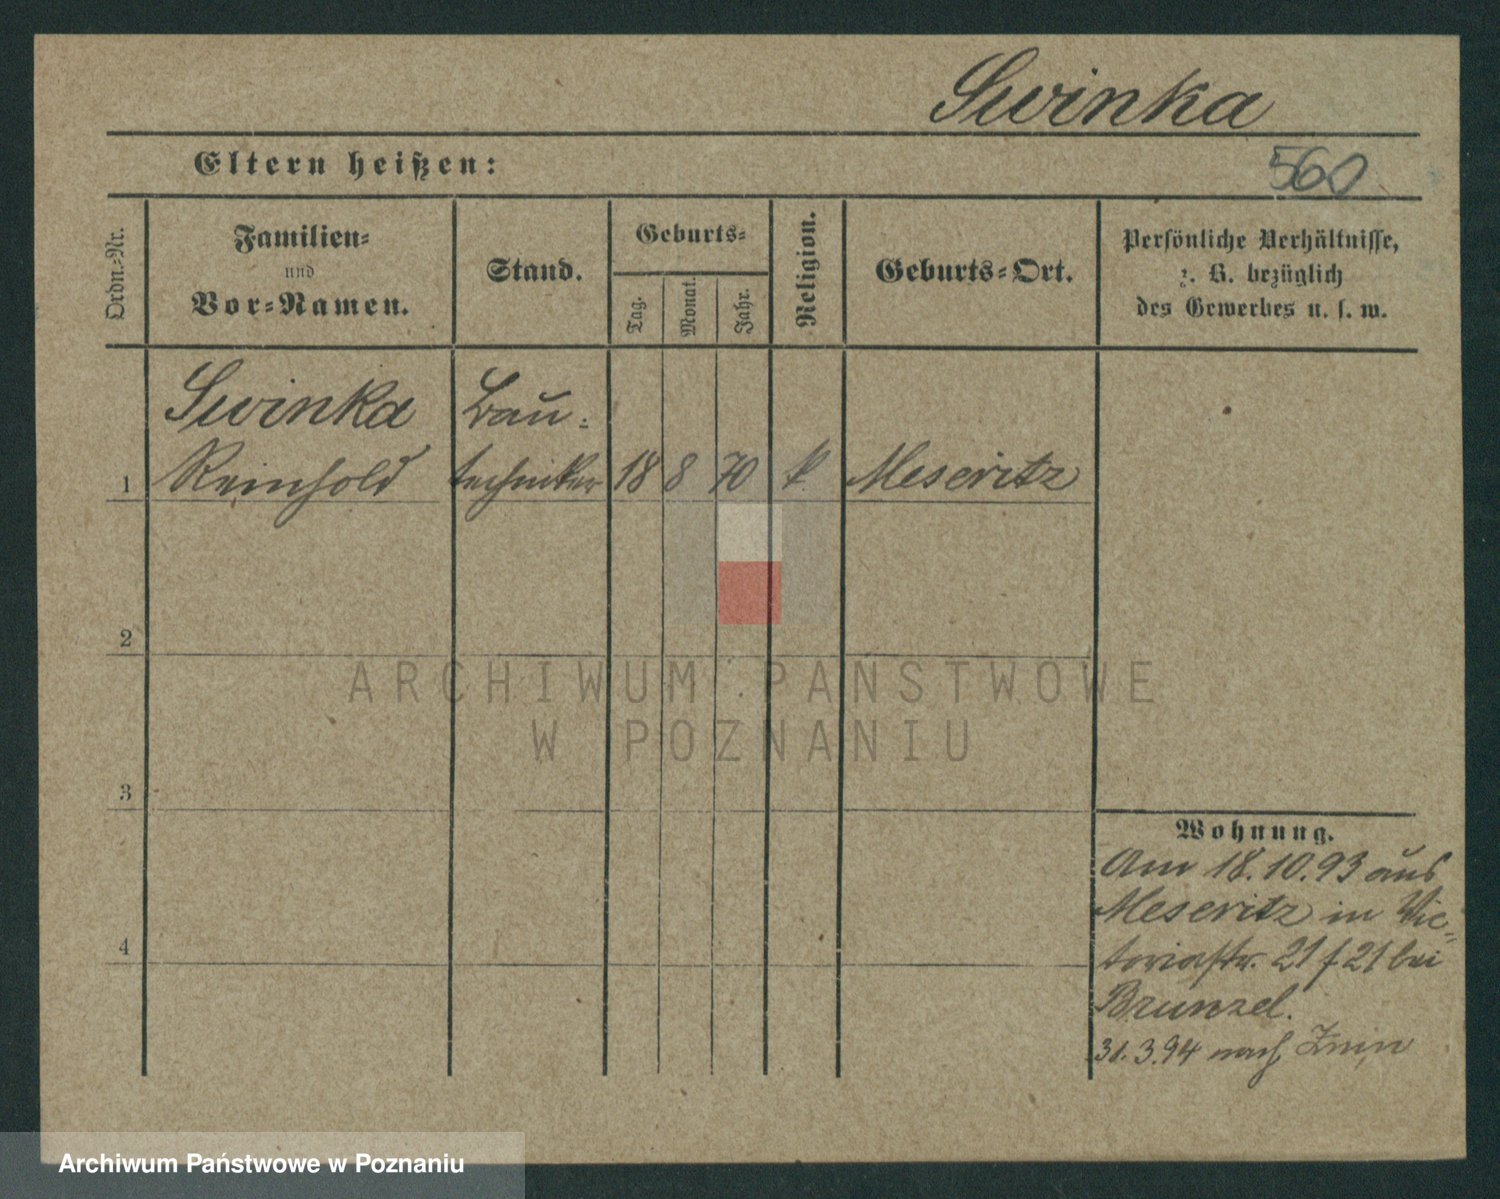 Swinka
Eltern heißen:
560
Ordn.-Nr.
Familien-
und
Vor-Namen.
Stand.
Geburts-
Tag.
Monat.
Jahr.
Religion.
Geburts-Ort.
Persönliche Verhältnisse,
z. B. bezüglich
des Gewerbes u. s. w.
Swinka
Bau-
1 Reinhold techniker 18 8 70 k. Meseritz
2
3
4
Wohnung.
Am 18.10.93 aus
Meseritz in Vic-
toriastr. 21 f 21 bei
Brunzel.
31.3.94 nach Znin
ARCHIWUM PAŃSTWOWE
W POZNANIU
Archiwum Państwowe w Poznaniu